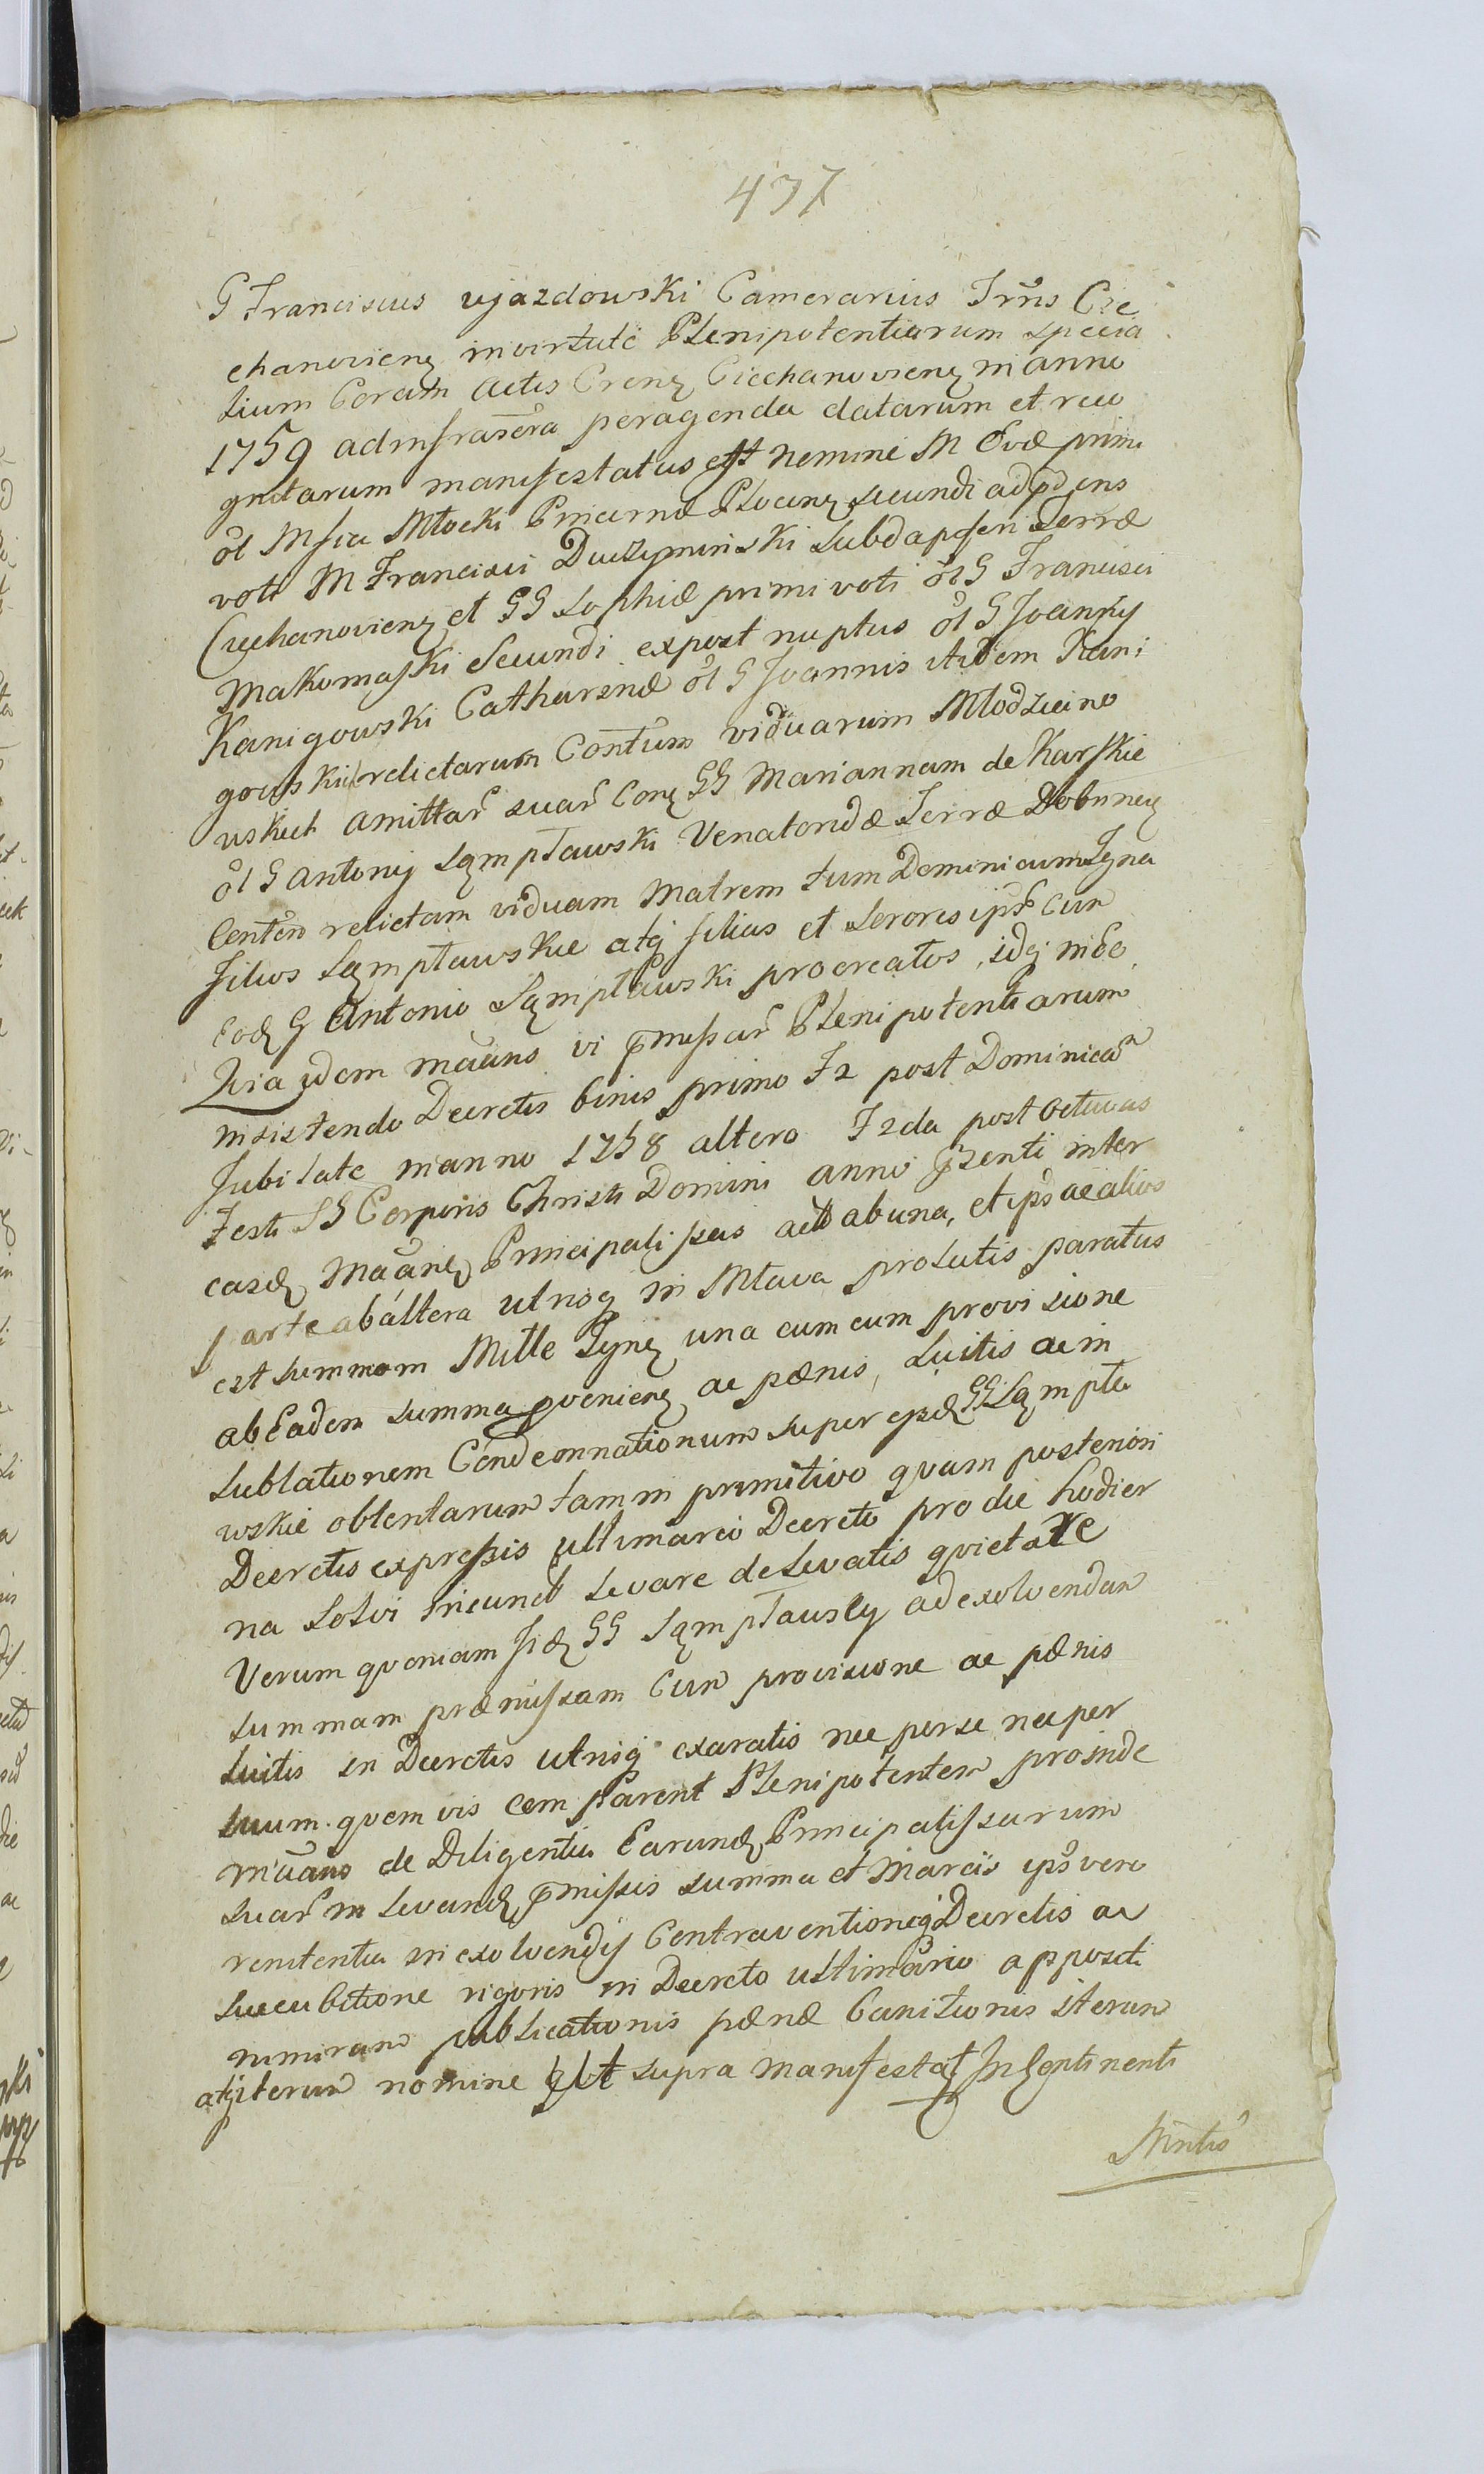 437
G Franciscus ujazdowski Camerarius Trrns Cie
chanovienʒ in virtute Plenipotentiarum specia
lium Coram actis Crenʒ Ciechanovienʒ in anno
1759 ad infrascra peragenda datarum et reco
gnitarum manifestatus est nomine M Evæ primi
ol Msia Młocki Pincernæ Plocenʒ secundi ad pdens
voti M Francisci Duczyminski Subdapiferi Terræ
Ciechanovienʒ et GG Sophiæ primi voti ol G Francisci
Makomaski Secundi expost nuptus ol G Joannis
Kanigowski Catharinæ ol G Joannis itidem Kani
gowski relictarum Contum viduarum Młodzieino
wskich amittar suar Conʒ GG Mariannam de Karskie
ol G Antonij Sqmpławski Venatoridæ Terræ Dobrinenʒ
Conten relictam viduam Matrem tum Dominicum Igna
filios Sqmpławskie atq filias et Sorores ipsr cum
Eodʒ G Antonio Sqmpławski procreatos, idqʒ in eo
Quia idem manns vi pmissar Plenipotentiarum
insistendo Decretis binis primo F2 post Dominicam
Jubilate in anno 1758 altero F2da post Octavas
Festi SS Corporis Christi Domini anno pzenti inter
easdʒ Mananʒ Principalissas act ab una, et ipsos ac alios
parte ab altera utrisq in Mlava prolatis paratus
est summam Mille Tynʒ una cum cum provisione
ab Eadem summa pvenienʒ ac pænis, Luitis ac in
sublationem Condemnationum super ipsdʒ GG Sqmpła
wskie obtentarum tam in primitivo quam posteriori
Decretis expressis ultimario Decreto pro die hodier
na solvi injunct Levare de Levatis quietare
Verum quoniam iidʒ GG Sqmpławscy ad exolvendam
summam præmissam Cum provisione ac pænis
luitis in Decretis utrisq exaratis nec per se nec per
suum quemvis comparent Plenipotentem proinde
manns de Diligentia Earundʒ Principalissarum
suar in Levandʒ pmissis summa et Marcis ipsr vero
renitentia in exolvendis Contraventioneq Decretis ac
succubitione rigoris in Decreto ultimario appositi
nimirum publicationis pænæ banitionis iterum
atq iterum nomine Qbt supra manifestat In Continenti
Mintro